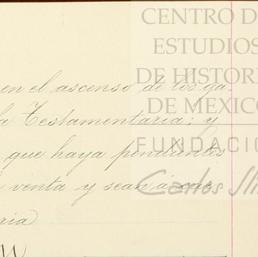 CENTRO DE
ESTUDIOS
DE HISTORI
DE MÉXICO
FUNDACIÓ
Carlos Sli
en el ascenso de los ga-
a Testamentaria; y
que haya pendientes
venta y sean á car
ria